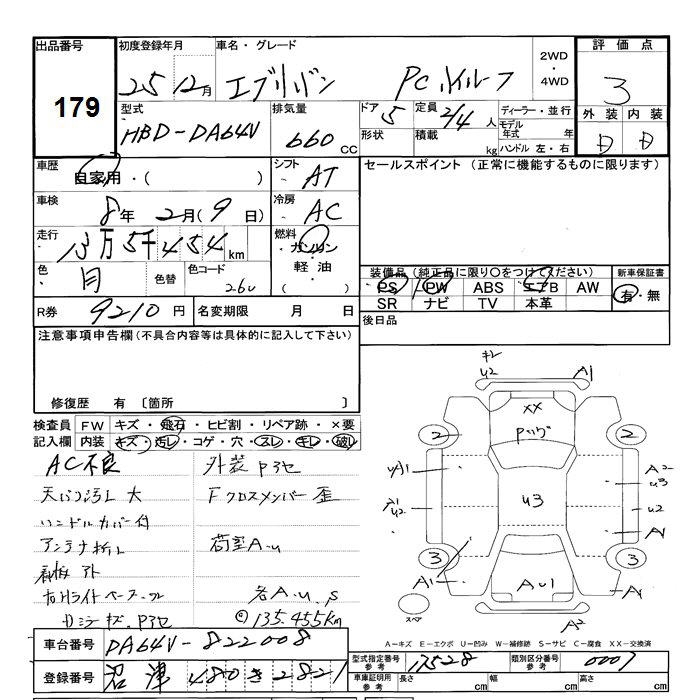 出品番号 初度登録年月 車名・グレード 2WD・4WD 評価点
179 25 12月 エブリイバン PC ハイルーフ 3
外装 内装
D D
型式 排気量 ドア 定員 ディーラー・並行
HBD-DA64V 660 CC 5 2/4 人 モデル年式 年
形状 積載 kg ハンドル 左・右
車歴 自家用・( ) シフト AT
セールスポイント (正常に機能するものに限ります)
車検 8年 2月(9日) 冷房 AC
走行 13万5千454 km 燃料 ガソリン・軽油・( )
色 色替 色コード 26U
装備品(純正品に限り○をつけてください) 新車保証書
PS PW ABS エアB AW 有・無
SR ナビ TV 本革
R券 9210円 名変期限 月 日
後日品
注意事項申告欄(不具合内容等は具体的に記入して下さい)
修復歴 有 〔箇所 〕
検査員 FW キズ・飛石・ヒビ割・リペア跡・×要
記入欄 内装 キズ・汚レ・コゲ・穴・スレ・キレ・破レ
AC不良 外装
天バリ汚レ 大 Fクロスメンバー 歪
ハンドルカバー付
アンテナ折レ 荷室A.U
各A.U.S
135,455km
キズ U2 A1
XX
2 2
UA1 A2 U3
A1 U2 U3 U2
A1
3 3
A1 AU1 A1
スペア
A2
A-キズ E-エクボ U-凹み W-補修跡 S-サビ C-腐食 XX-交換済
車台番号 DA64V-822008
型式指定番号 参考 17528 類別区分番号 参考 0007
登録番号 沼津 480 き 2821
車庫証明用 参考 長さ cm 幅 cm 高さ cm